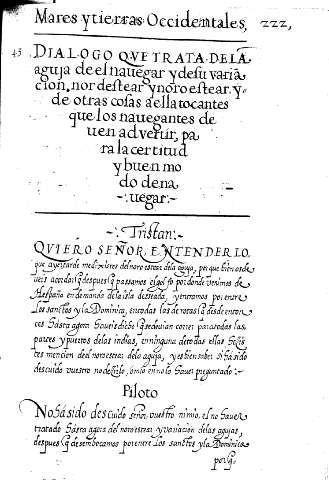 Mares y tierras Occidentales, 222,
DIALOGO QVE TRATA DE LA
aguja de el nauegar y de su varia
cion, nordestear y noroestear. y
de otras cosas a ella tocantes
que los nauegantes de
uen aduertir, pa
ra la certitud
y buen mo
do de na
uegar
Tristan
QVIERO SEÑOR, ENTENDERLO,
que ayer tarde me dixistes del noroestear de la aguja, porque bien os de
ueis acordar q despues q passamos el golfo por donde venimos de
Hespaña en demanda de la isla desseada, y entramos por entre
los sanctos y la Dominica, en todas las derrotas q desde enton
ces hasta agora haueis dicho q se deuian correr para todas las
partes y puertos de las indias, en ninguna de todas ellas hezis
tes mencion del noroestear de la aguja, y es bien saber si ha sido
descuido vuestro no dezirlo, o mio en no lo hauer preguntado
Piloto
NO ha sido descuido señor, vuestro ni mio, el no hauer
tratado hasta agora del noroestear y variacion de las agujas,
despues q desembocamos por entre los sanctos y la Dominica
porq